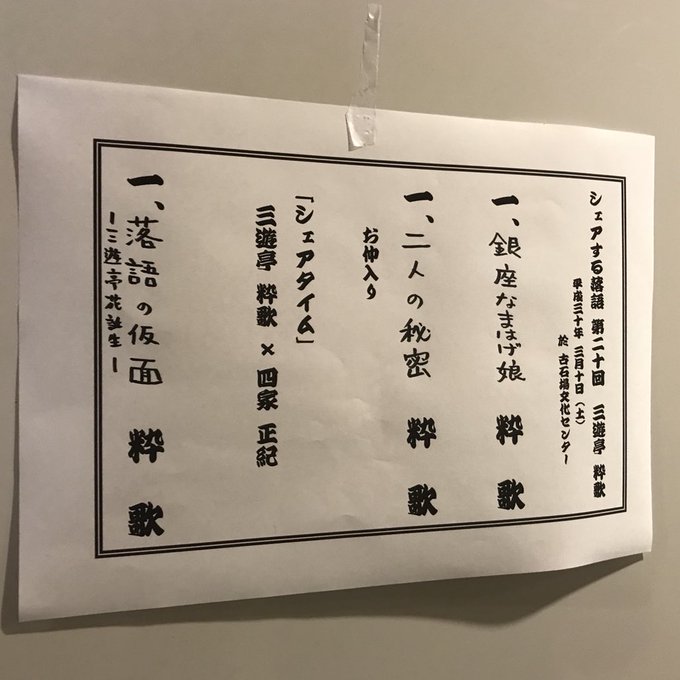 シェアする落語 第二十回 三遊亭 粋歌
平成三十年 三月十日(土)
於 古石場文化センター
一、銀座なまはげ娘 粋歌
一、二人の秘密 粋歌
お仲入り
「シェアタイム」
三遊亭 粋歌 × 四家 正紀
一、落語の仮面 粋歌
ー三遊亭花誕生ー